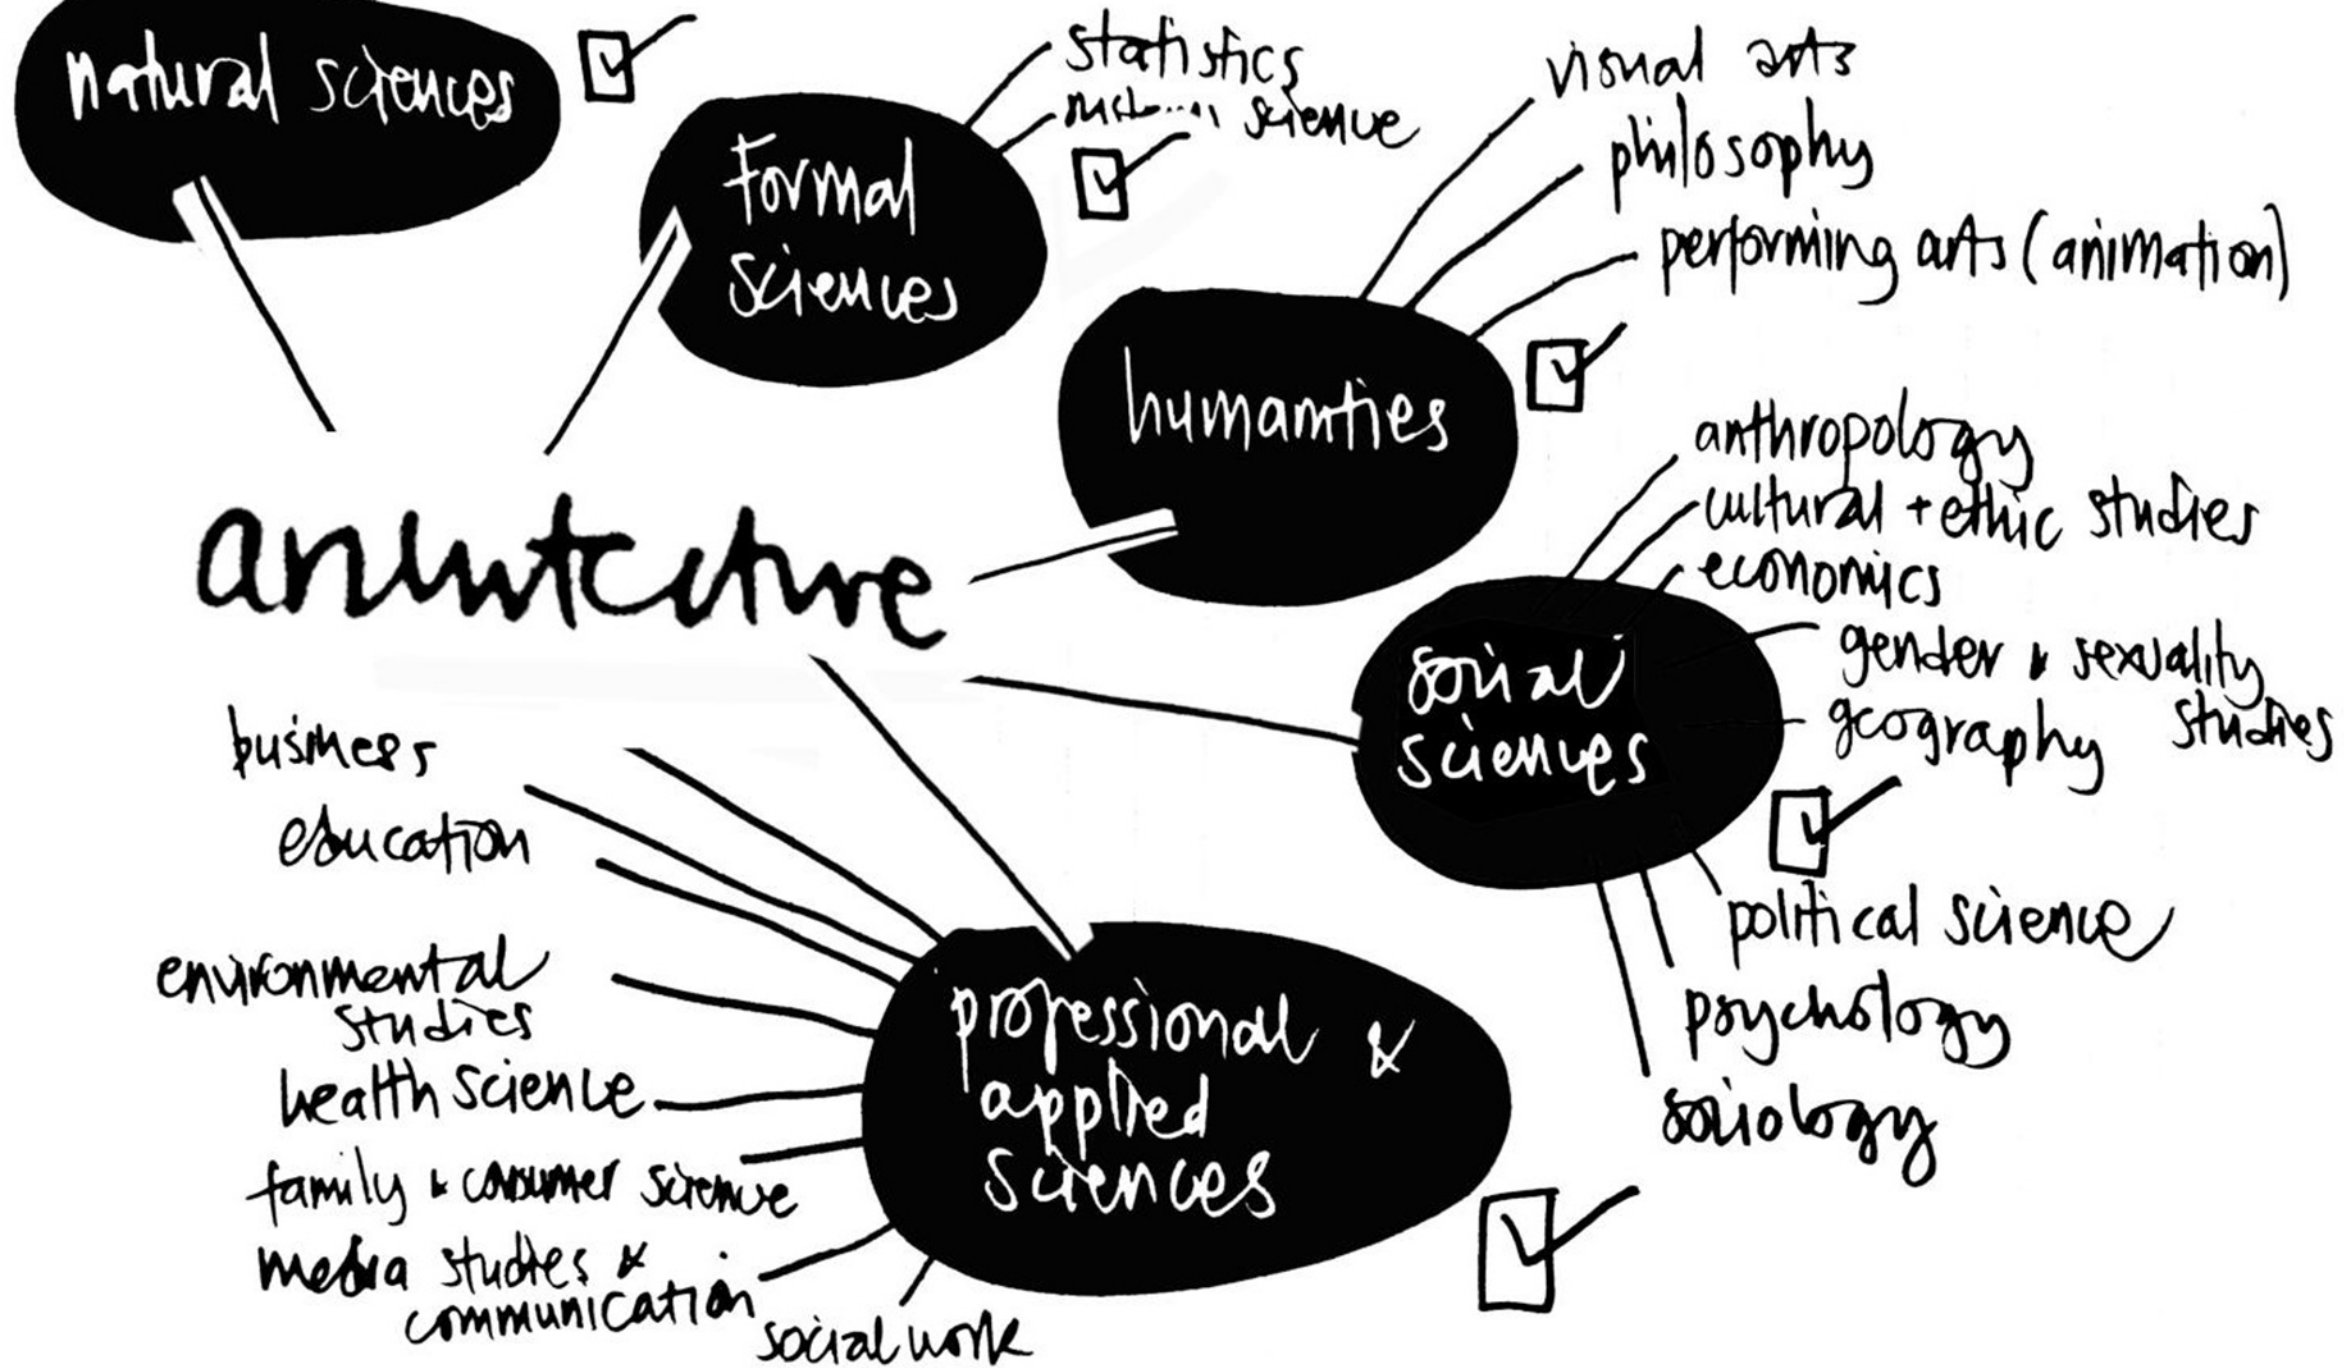 natural sciences
statistics
science
Formal
sciences
visual arts
philosophy
performing arts (animation)
humanities
anthropology
cultural + ethic studies
economics
gender & sexuality
studies
geography
social
sciences
political science
psychology
sociology
business
education
environmental
studies
health science
family & consumer science
media studies &
communication
social work
professional &
applied
sciences